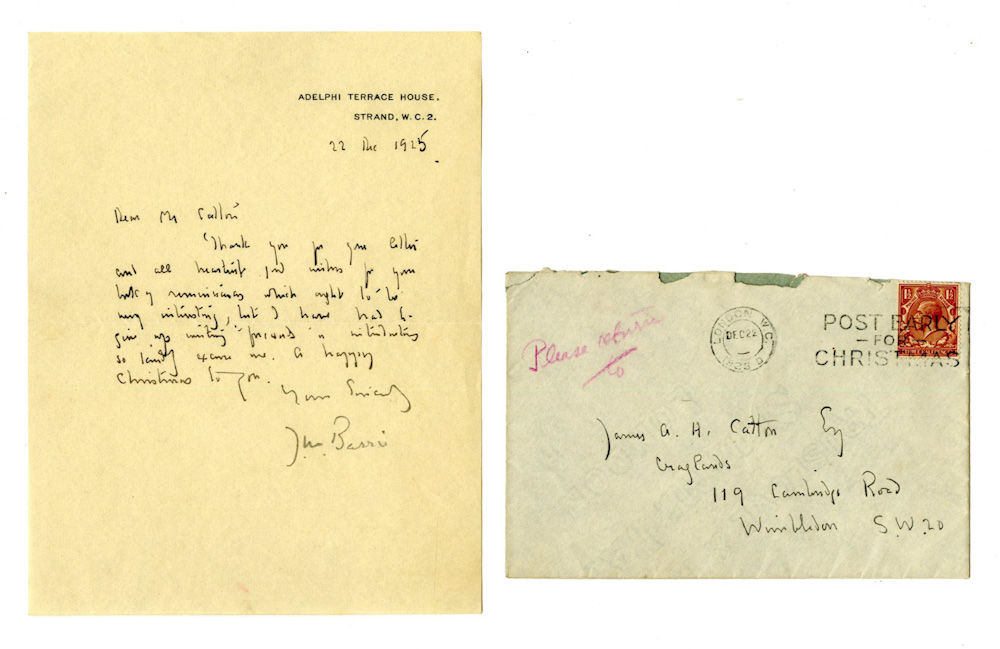 ADELPHI TERRACE HOUSE.
STRAND, W.C.2.
22 Dec 1925.
Dear Mr Catton
Thank you for your letter
and all heartiest good wishes for your
book of reminiscences which ought to be
very interesting, but I have had to
give up writing forewords or introductions
so kindly excuse me. A happy
Christmas to you.
Yours Sincerely
J. M. Barrie
Please return
to
LONDON W.C.
DEC 22
POST EARLY
— FOR —
CHRISTMAS
1½ 1½
James A. H. Catton Esq
Craglands
119 Cambridge Road
Wimbledon S.W.20